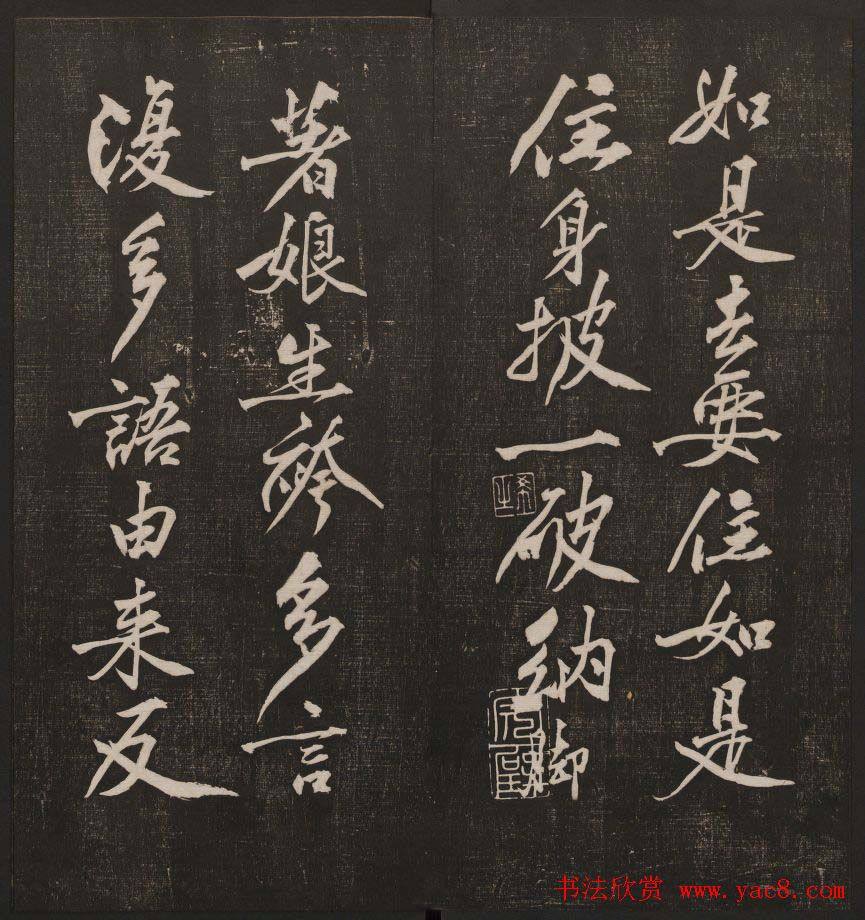 如是去要住如是
住身披一破納脚
著娘生袴多言
復多語由来反
书法欣赏 www.yac8.com